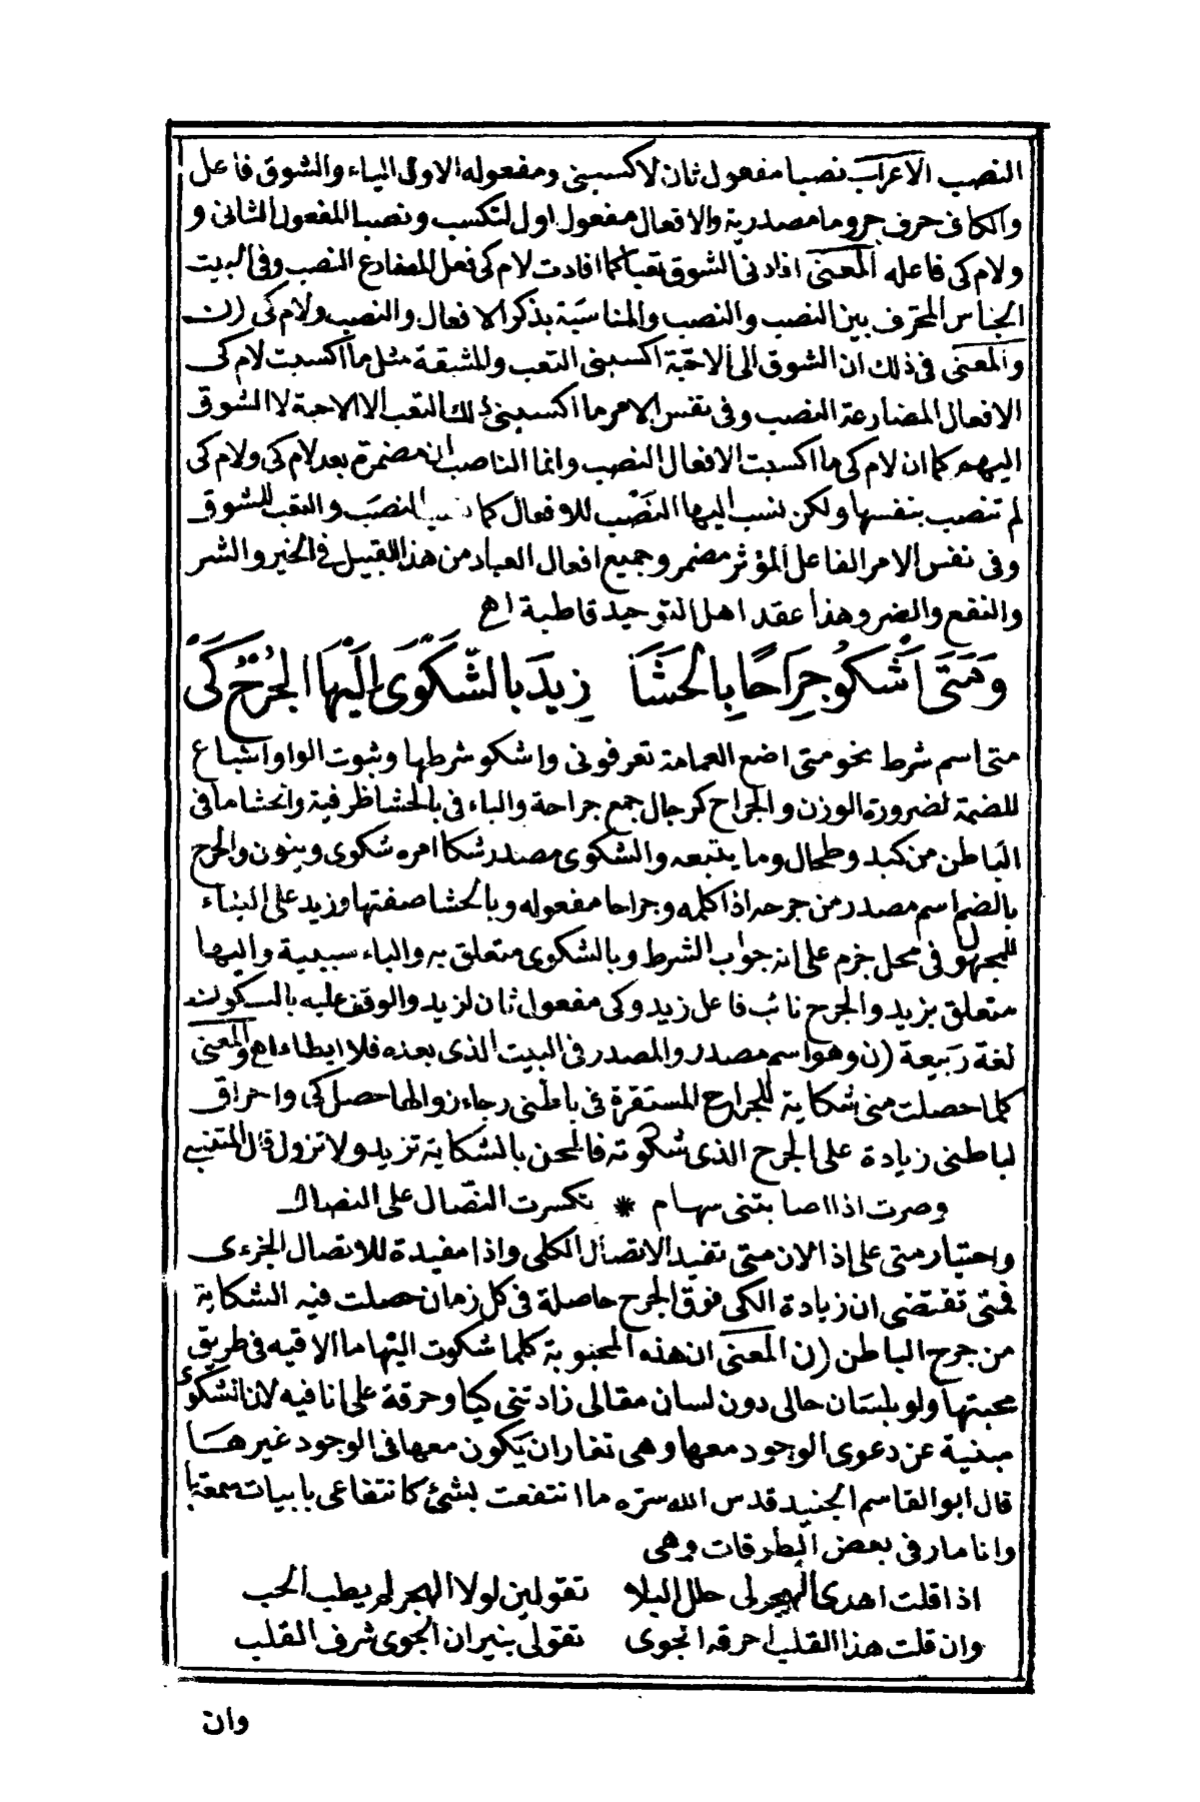 النصب الاعراب نصبا مفعول ثان لاكسبنى ومفعوله الاول الياء والشوق فاعل
والكاف حرف جر وما مصدرية والافعال مفعول اول لتكسب ونصبا المفعول الثانى و
ولام كى فاعله المعنى افادنى الشوق تعبا كما افادت لام كى فعل المضارع النصب وفى البيت
الجناس المحرف بين النصب والنصب والمناسبة بذكر الافعال والنصب ولام كى (ن
والمعنى فى ذلك ان الشوق الى الاحبة اكسبنى التعب والمشقة مثل ما اكسبت لام كى
الافعال المضارعة النصب وفى نفس الامر ما اكسبنى ذلك التعب الا الاحبة لا الشوق
اليهم كما ان لام كى ما اكسبت الافعال النصب وانما الناصب ان مضمرة بعد لام كى ولام كى
لم تنصب بنفسها ولكن نسب اليها النصب للافعال كما النصب والتعب للشوق
وفى نفس الامر الفاعل المؤثر مضمر وجميع افعال العباد من هذا القبيل فى الخير والشر
والنفع والضر وهذا عقد اهل التوحيد قاطبة اهـ
وَمَتَى أَشْكُو جِرَاحًا بِالحَشَا زِيدَ بالشَّكْوَى إِلَيْهَا الجُرْحُ كَىْ
متى اسم شرط نحو متى اضع العمامة تعرفونى واشكو شرطها وثبوت الواو اشباع
للضمة لضرورة الوزن والجراح كرجال جمع جراحة والباء فى بالحشا ظرفية والحشا ما فى
الباطن من كبد وطحال وما يتبعه والشكوى مصدر شكا امره شكوى وينون والجرح
بالضم اسم مصدر من جرحه اذا كلمه وجراحا مفعوله وبالحشا صفتها وزيد على البناء
للمجهول فى محل جزم على انه جواب الشرط وبالشكوى متعلق به والباء سببية واليها
متعلق بزيد والجرح نائب فاعل زيد وكى مفعول ثان لزيد والوقف عليه بالسكون
لغة ربيعة (ن وهو اسم مصدر والمصدر فى البيت الذى بعده فلا ايطاء اهـ والمعنى
كلما حصلت منى شكاية للجراح المستقرة فى باطنى رجاء زوالها حصل كى واحراق
لباطنى زيادة على الجرح الذى شكوته فالمحن بالشكاية تزيد ولا تزول قال المتنبى
وصرت اذا اصابتنى سهام * تكسرت النصال على النصال
واختيار متى على اذا لان متى تفيد الاتصال الكلى واذا مفيدة للاتصال الجزءى
فمتى تقتضى ان زيادة الكى فوق الجرح حاصلة فى كل زمان حصلت فيه الشكاية
من جرح الباطن (ن المعنى ان هذه المحبوبة كلما شكوت اليها ما الاقيه فى طريق
محبتها ولو بلسان حالى دون لسان مقالى زادتنى كيا وحرقة على انا فيه لان الشكوى
مبنية عن دعوى الوجود معها وهى تغار ان يكون معها فى الوجود غيرها
قال ابو القاسم الجنيد قدس الله سره ما انتفعت بشئ كانتفاعى بابيات سمعتها
وانا مار فى بعض الطرقات وهى
اذا قلت اهدى الهجر لى حلل البلا تقولين لولا الهجر لم يطب الحب
وان قلت هذا القلب احرقه الجوى تقولى بنيران الجوى شرف القلب
وان